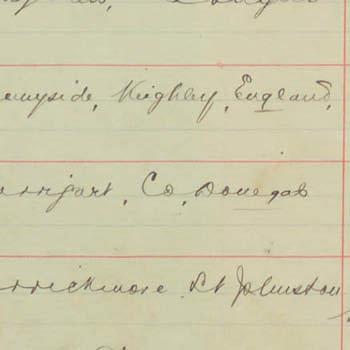 nnyside, Keighley, England,
arrigart, Co, Donegal
arrickmore St Johnston